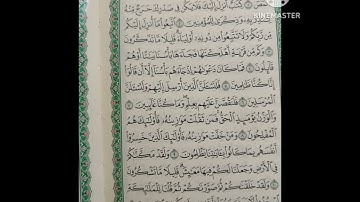 KINEMASTER
الٓمٓصٓ ۝ كِتَٰبٌ أُنزِلَ إِلَيْكَ فَلَا يَكُن فِى صَدْرِكَ حَرَجٌ مِّنْهُ
لِتُنذِرَ بِهِۦ وَذِكْرَىٰ لِلْمُؤْمِنِينَ ۝ ٱتَّبِعُوا۟ مَآ أُنزِلَ إِلَيْكُم
مِّن رَّبِّكُمْ وَلَا تَتَّبِعُوا۟ مِن دُونِهِۦٓ أَوْلِيَآءَ ۗ قَلِيلًا مَّا تَذَكَّرُونَ
۝ وَكَم مِّن قَرْيَةٍ أَهْلَكْنَٰهَا فَجَآءَهَا بَأْسُنَا بَيَٰتًا أَوْ هُمْ
قَآئِلُونَ ۝ فَمَا كَانَ دَعْوَىٰهُمْ إِذْ جَآءَهُم بَأْسُنَآ إِلَّآ أَن قَالُوٓا۟
إِنَّا كُنَّا ظَٰلِمِينَ ۝ فَلَنَسْـَٔلَنَّ ٱلَّذِينَ أُرْسِلَ إِلَيْهِمْ وَلَنَسْـَٔلَنَّ
ٱلْمُرْسَلِينَ ۝ فَلَنَقُصَّنَّ عَلَيْهِم بِعِلْمٍ ۖ وَمَا كُنَّا غَآئِبِينَ ۝
وَٱلْوَزْنُ يَوْمَئِذٍ ٱلْحَقُّ ۚ فَمَن ثَقُلَتْ مَوَٰزِينُهُۥ فَأُو۟لَٰٓئِكَ هُمُ
ٱلْمُفْلِحُونَ ۝ وَمَنْ خَفَّتْ مَوَٰزِينُهُۥ فَأُو۟لَٰٓئِكَ ٱلَّذِينَ خَسِرُوٓا۟
أَنفُسَهُم بِمَا كَانُوا۟ بِـَٔايَٰتِنَا يَظْلِمُونَ ۝ وَلَقَدْ مَكَّنَّٰكُمْ
فِى ٱلْأَرْضِ وَجَعَلْنَا لَكُمْ فِيهَا مَعَٰيِشَ ۗ قَلِيلًا مَّا تَشْكُرُونَ
۝ وَلَقَدْ خَلَقْنَٰكُمْ ثُمَّ صَوَّرْنَٰكُمْ ثُمَّ قُلْنَا لِلْمَلَٰٓئِكَةِ